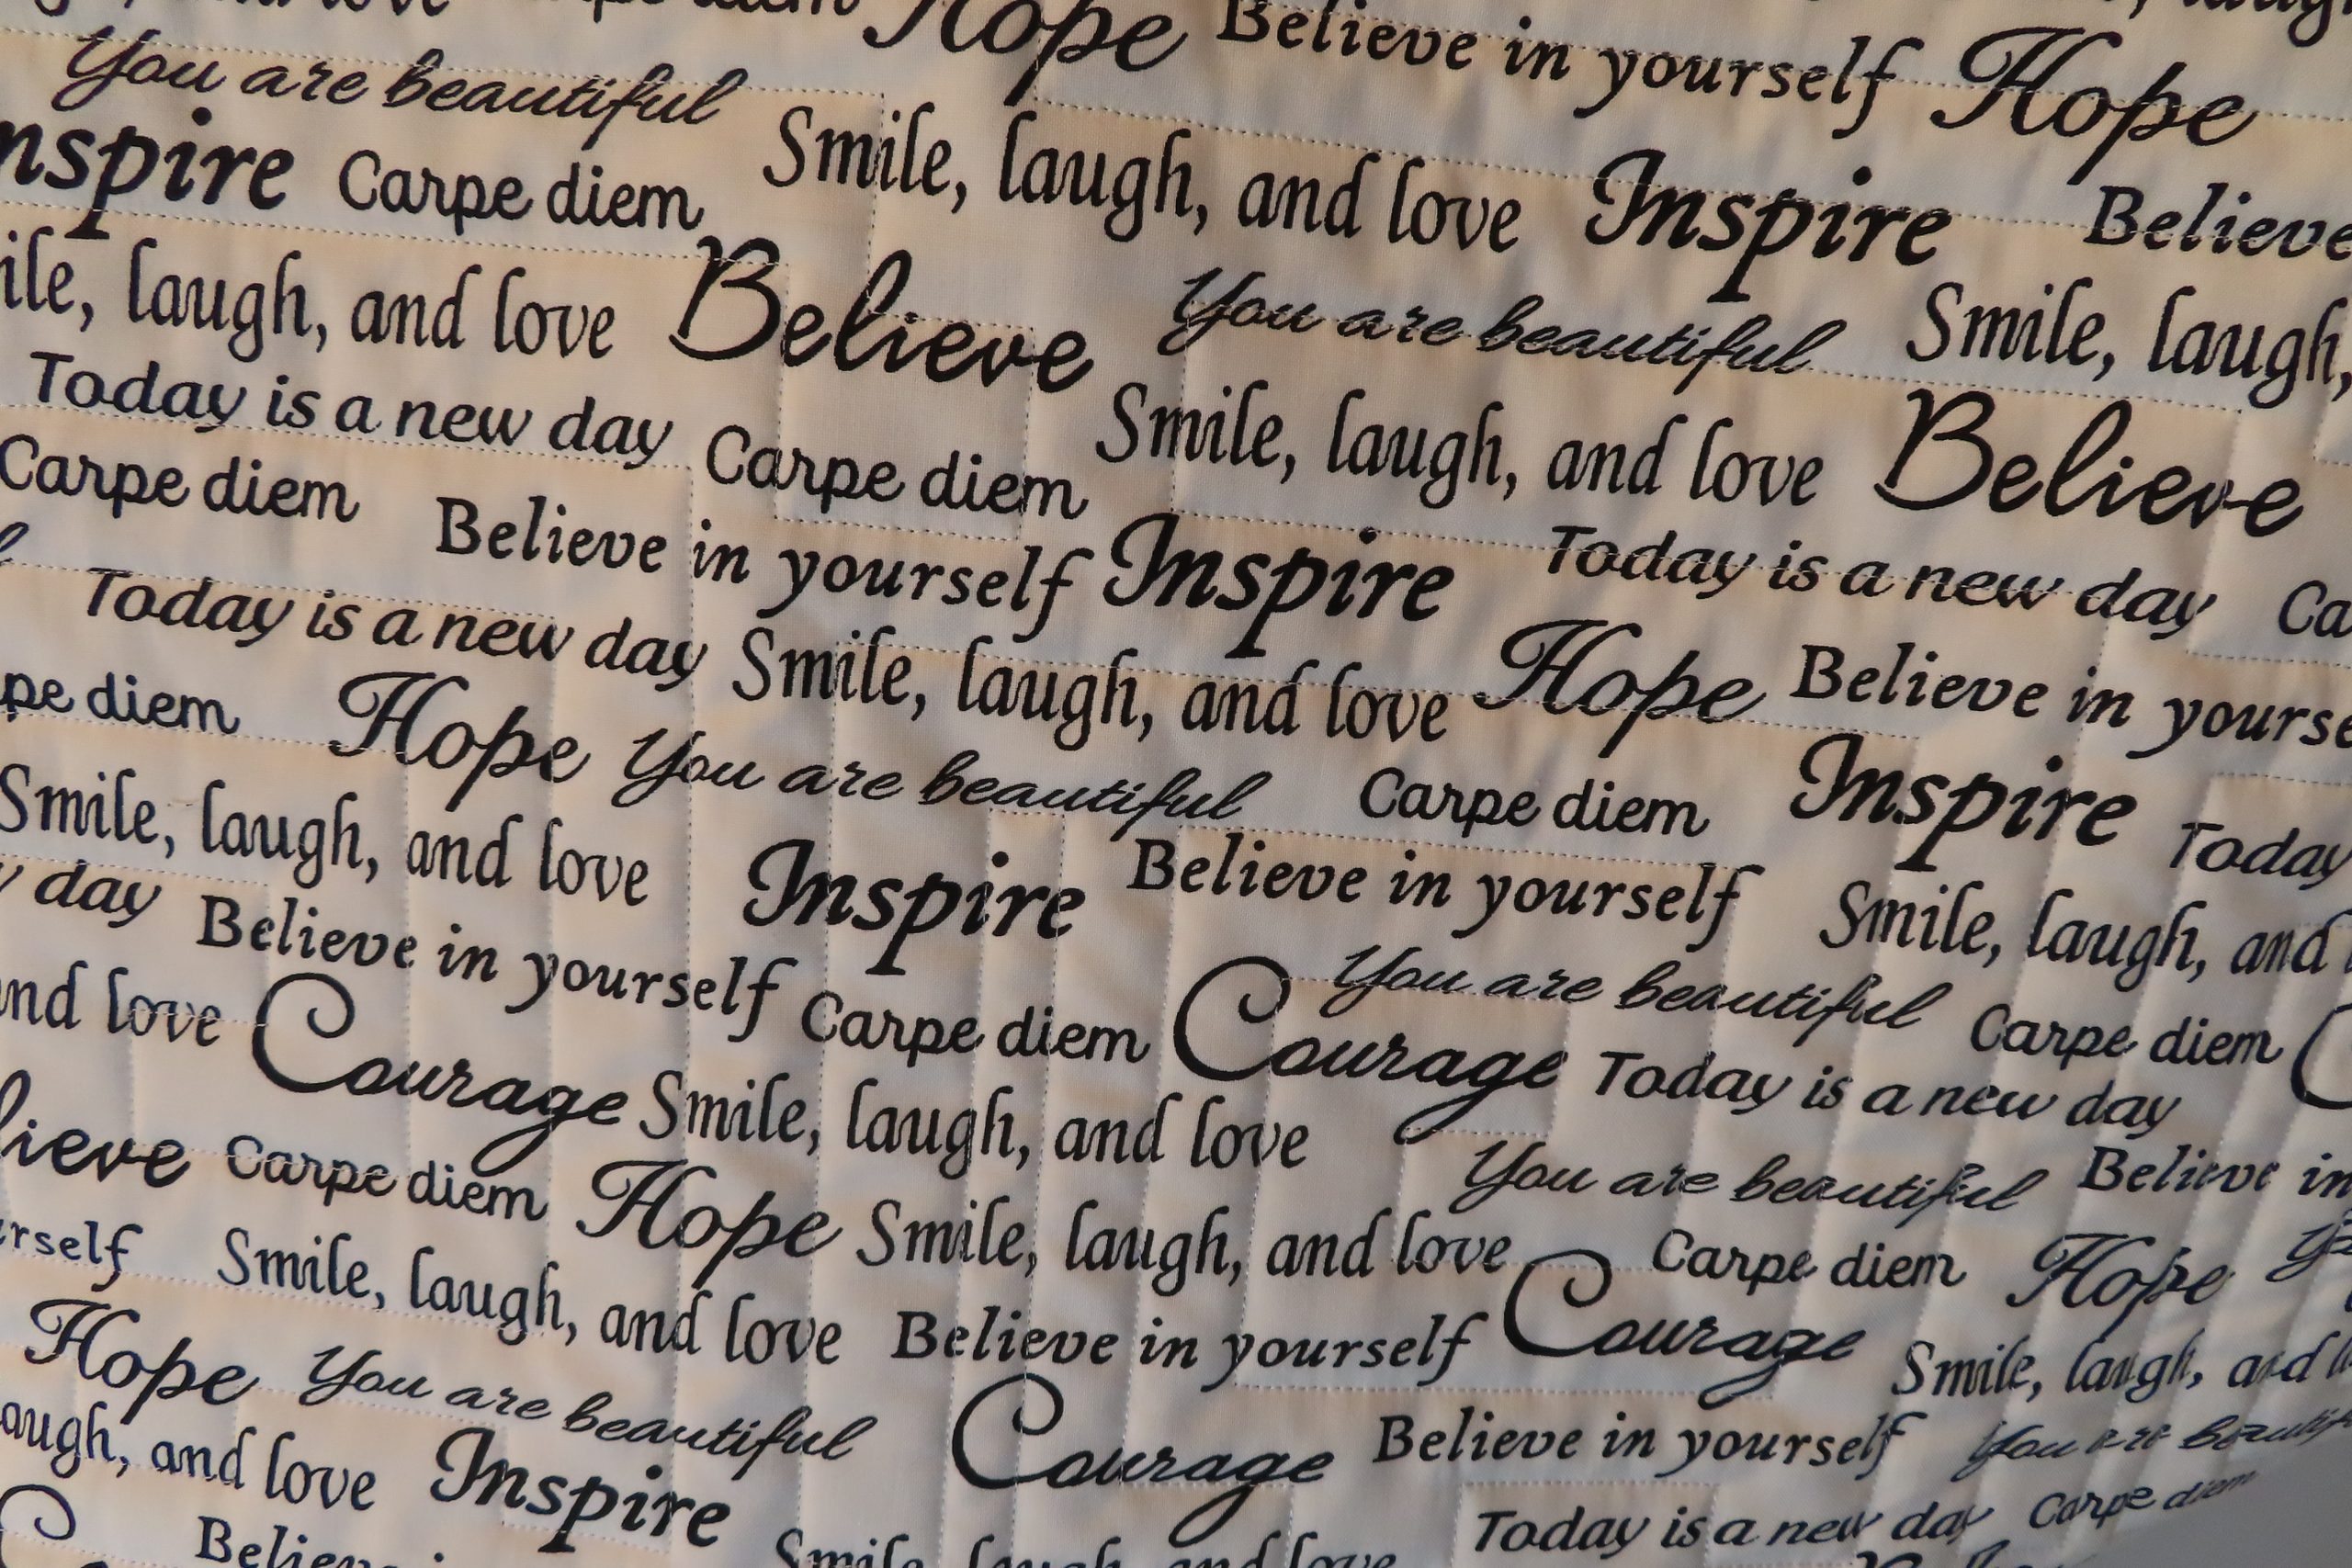 and love Carpe diem Hope Believe in yourself Hope
You are beautiful Smile, laugh, and love Inspire Believe
nspire Carpe diem
ile, laugh, and love Believe You are beautiful Smile, laugh,
Today is a new day Carpe diem Smile, laugh, and love Believe
Carpe diem Believe in yourself Inspire Today is a new day Ca
Today is a new day Smile, laugh, and love Hope Believe in yourse
pe diem Hope You are beautiful Carpe diem Inspire Today
Smile, laugh, and love Inspire Believe in yourself Smile, laugh, and
day Believe in yourself Carpe diem Courage You are beautiful Carpe diem C
nd love Courage Smile, laugh, and love Today is a new day
lieve Carpe diem Hope Smile, laugh, and love You are beautiful Believe in
rself Smile, laugh, and love Believe in yourself Courage Carpe diem Hope
Hope You are beautiful Courage Believe in yourself Smile, laugh, and
augh, and love Inspire You are beautif
C Believe Smile, laugh, and love Today is a new day Carpe diem